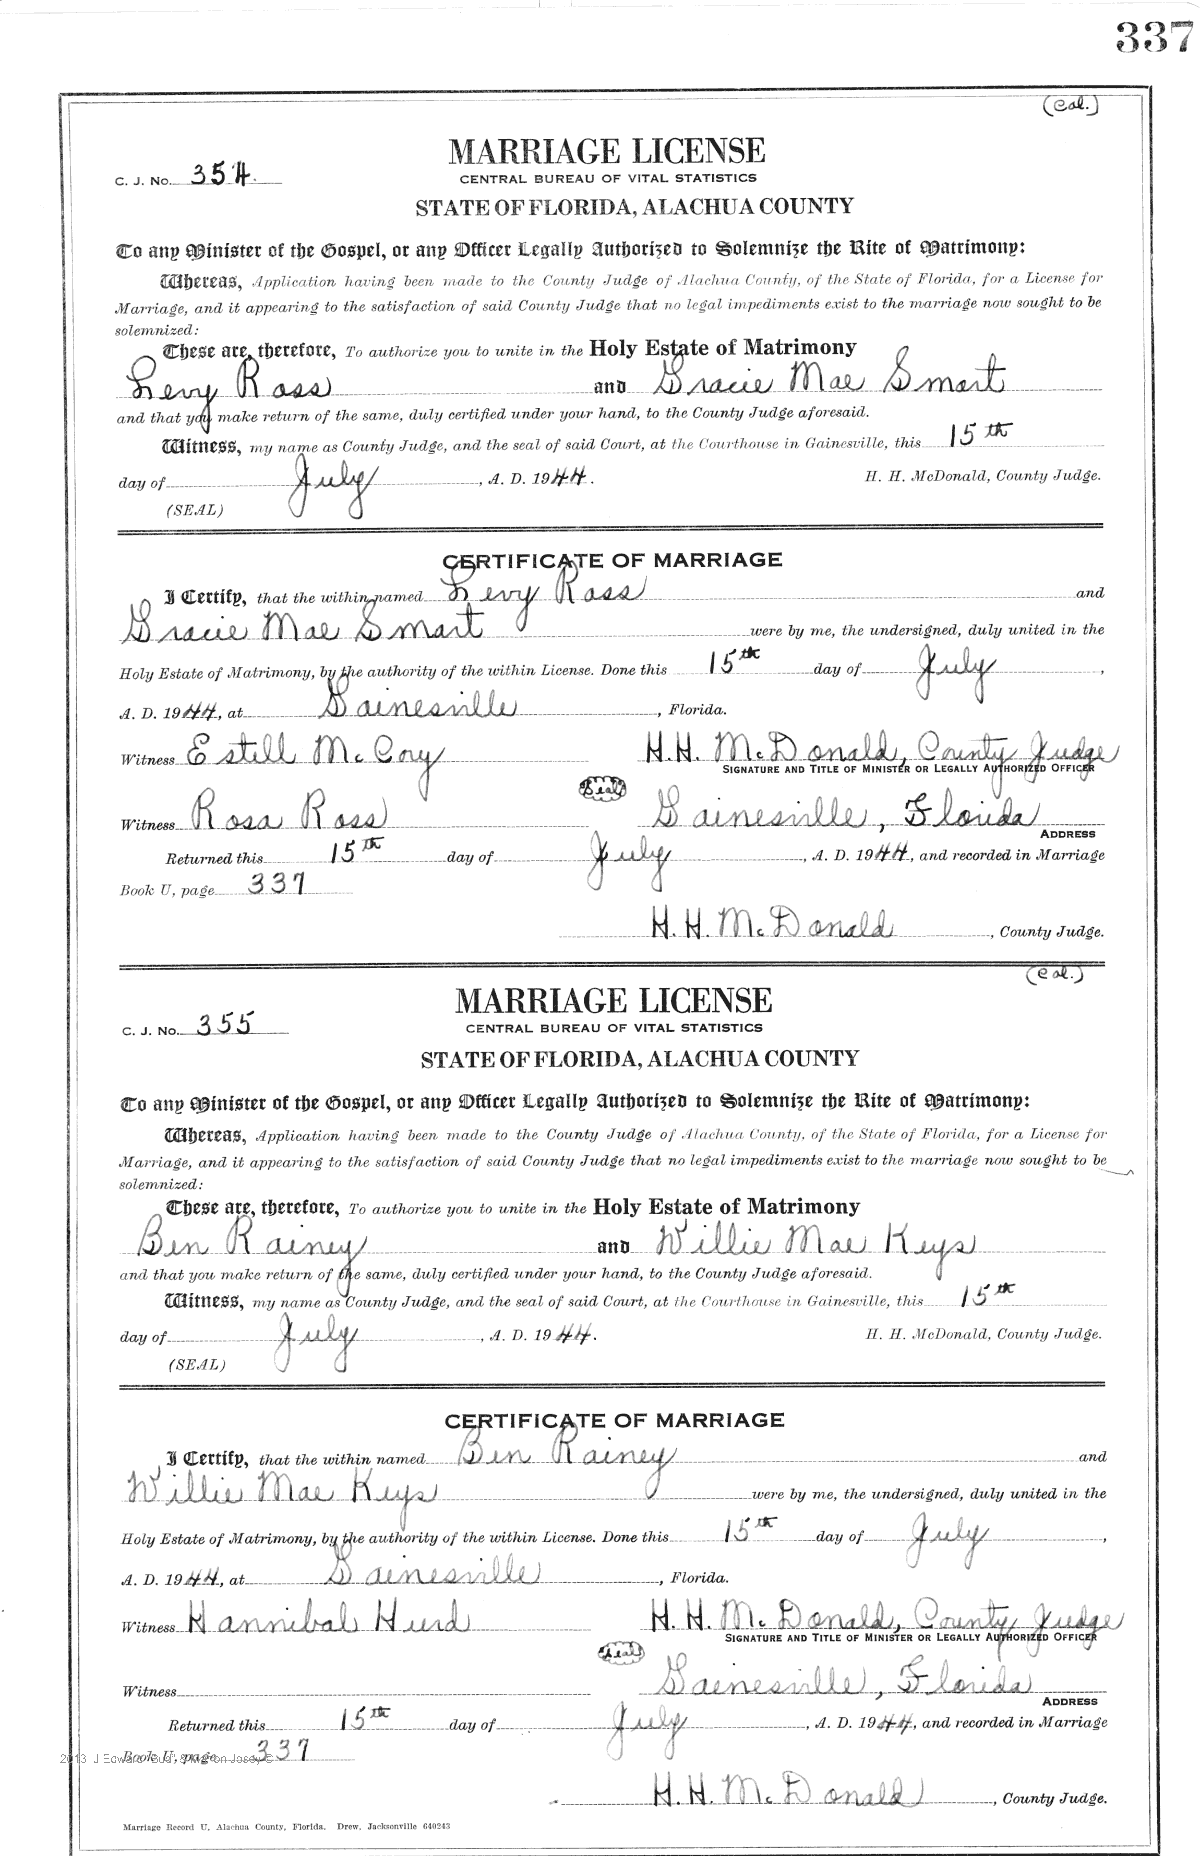 337
(Col.)
MARRIAGE LICENSE
C. J. No. 354.
CENTRAL BUREAU OF VITAL STATISTICS
STATE OF FLORIDA, ALACHUA COUNTY
To any Minister of the Gospel, or any Officer Legally Authorized to Solemnize the Rite of Matrimony:
Whereas, Application having been made to the County Judge of Alachua County, of the State of Florida, for a License for
Marriage, and it appearing to the satisfaction of said County Judge that no legal impediments exist to the marriage now sought to be
solemnized:
These are, therefore, To authorize you to unite in the Holy Estate of Matrimony
Levy Ross and Gracie Mae Smart
and that you make return of the same, duly certified under your hand, to the County Judge aforesaid.
Witness, my name as County Judge, and the seal of said Court, at the Courthouse in Gainesville, this 15th
day of July, A. D. 1944. H. H. McDonald, County Judge.
(SEAL)
CERTIFICATE OF MARRIAGE
I Certify, that the within named Levy Ross and
Gracie Mae Smart were by me, the undersigned, duly united in the
Holy Estate of Matrimony, by the authority of the within License. Done this 15th day of July,
A. D. 1944, at Gainesville, Florida.
Witness Estill McCory H. H. McDonald, County Judge
SIGNATURE AND TITLE OF MINISTER OR LEGALLY AUTHORIZED OFFICER
(Seal)
Witness Rosa Ross Gainesville, Florida
ADDRESS
Returned this 15th day of July, A. D. 1944, and recorded in Marriage
Book U, page 337
H. H. McDonald, County Judge.
(Col.)
MARRIAGE LICENSE
C. J. No. 355
CENTRAL BUREAU OF VITAL STATISTICS
STATE OF FLORIDA, ALACHUA COUNTY
To any Minister of the Gospel, or any Officer Legally Authorized to Solemnize the Rite of Matrimony:
Whereas, Application having been made to the County Judge of Alachua County, of the State of Florida, for a License for
Marriage, and it appearing to the satisfaction of said County Judge that no legal impediments exist to the marriage now sought to be
solemnized:
These are, therefore, To authorize you to unite in the Holy Estate of Matrimony
Ben Rainey and Willie Mae Keys
and that you make return of the same, duly certified under your hand, to the County Judge aforesaid.
Witness, my name as County Judge, and the seal of said Court, at the Courthouse in Gainesville, this 15th
day of July, A. D. 1944. H. H. McDonald, County Judge.
(SEAL)
CERTIFICATE OF MARRIAGE
I Certify, that the within named Ben Rainey and
Willie Mae Keys were by me, the undersigned, duly united in the
Holy Estate of Matrimony, by the authority of the within License. Done this 15th day of July,
A. D. 1944, at Gainesville, Florida.
Witness Hannibal Hurd H. H. McDonald, County Judge
SIGNATURE AND TITLE OF MINISTER OR LEGALLY AUTHORIZED OFFICER
(Seal)
Witness Gainesville, Florida
ADDRESS
Returned this 15th day of July, A. D. 1944, and recorded in Marriage
Book U, page 337
2013 J Edward "Bud"
H. H. McDonald, County Judge.
Marriage Record U, Alachua County, Florida. Drew, Jacksonville 640243